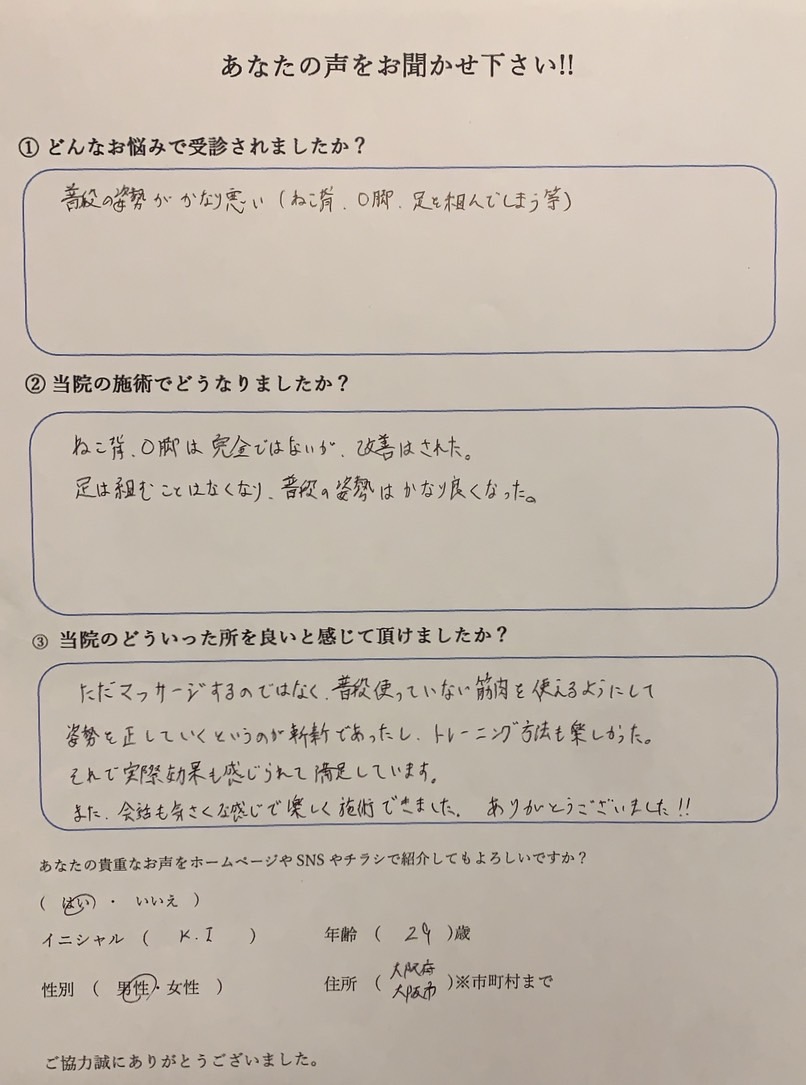 あなたの声をお聞かせ下さい!!
① どんなお悩みで受診されましたか？
普段の姿勢がかなり悪い（ねこ背、O脚、足を組んでしまう等）
② 当院の施術でどうなりましたか？
ねこ背、O脚は完全ではないが、改善はされた。
足は組むことはなくなり、普段の姿勢はかなり良くなった。
③ 当院のどういった所を良いと感じて頂けましたか？
ただマッサージするのではなく、普段使っていない筋肉を使えるようにして
姿勢を正していくというのが斬新であったし、トレーニング方法も楽しかった。
それで実際効果も感じられて満足しています。
また、会話も気さくな感じで楽しく施術できました。 ありがとうございました!!
あなたの貴重なお声をホームページやSNSやチラシで紹介してもよろしいですか？
（ はい ・ いいえ ）
イニシャル （ K.I ） 年齢 （ 29 ）歳
性別 （ 男性・女性 ） 住所 （ 大阪府 大阪市 ）※市町村まで
ご協力誠にありがとうございました。